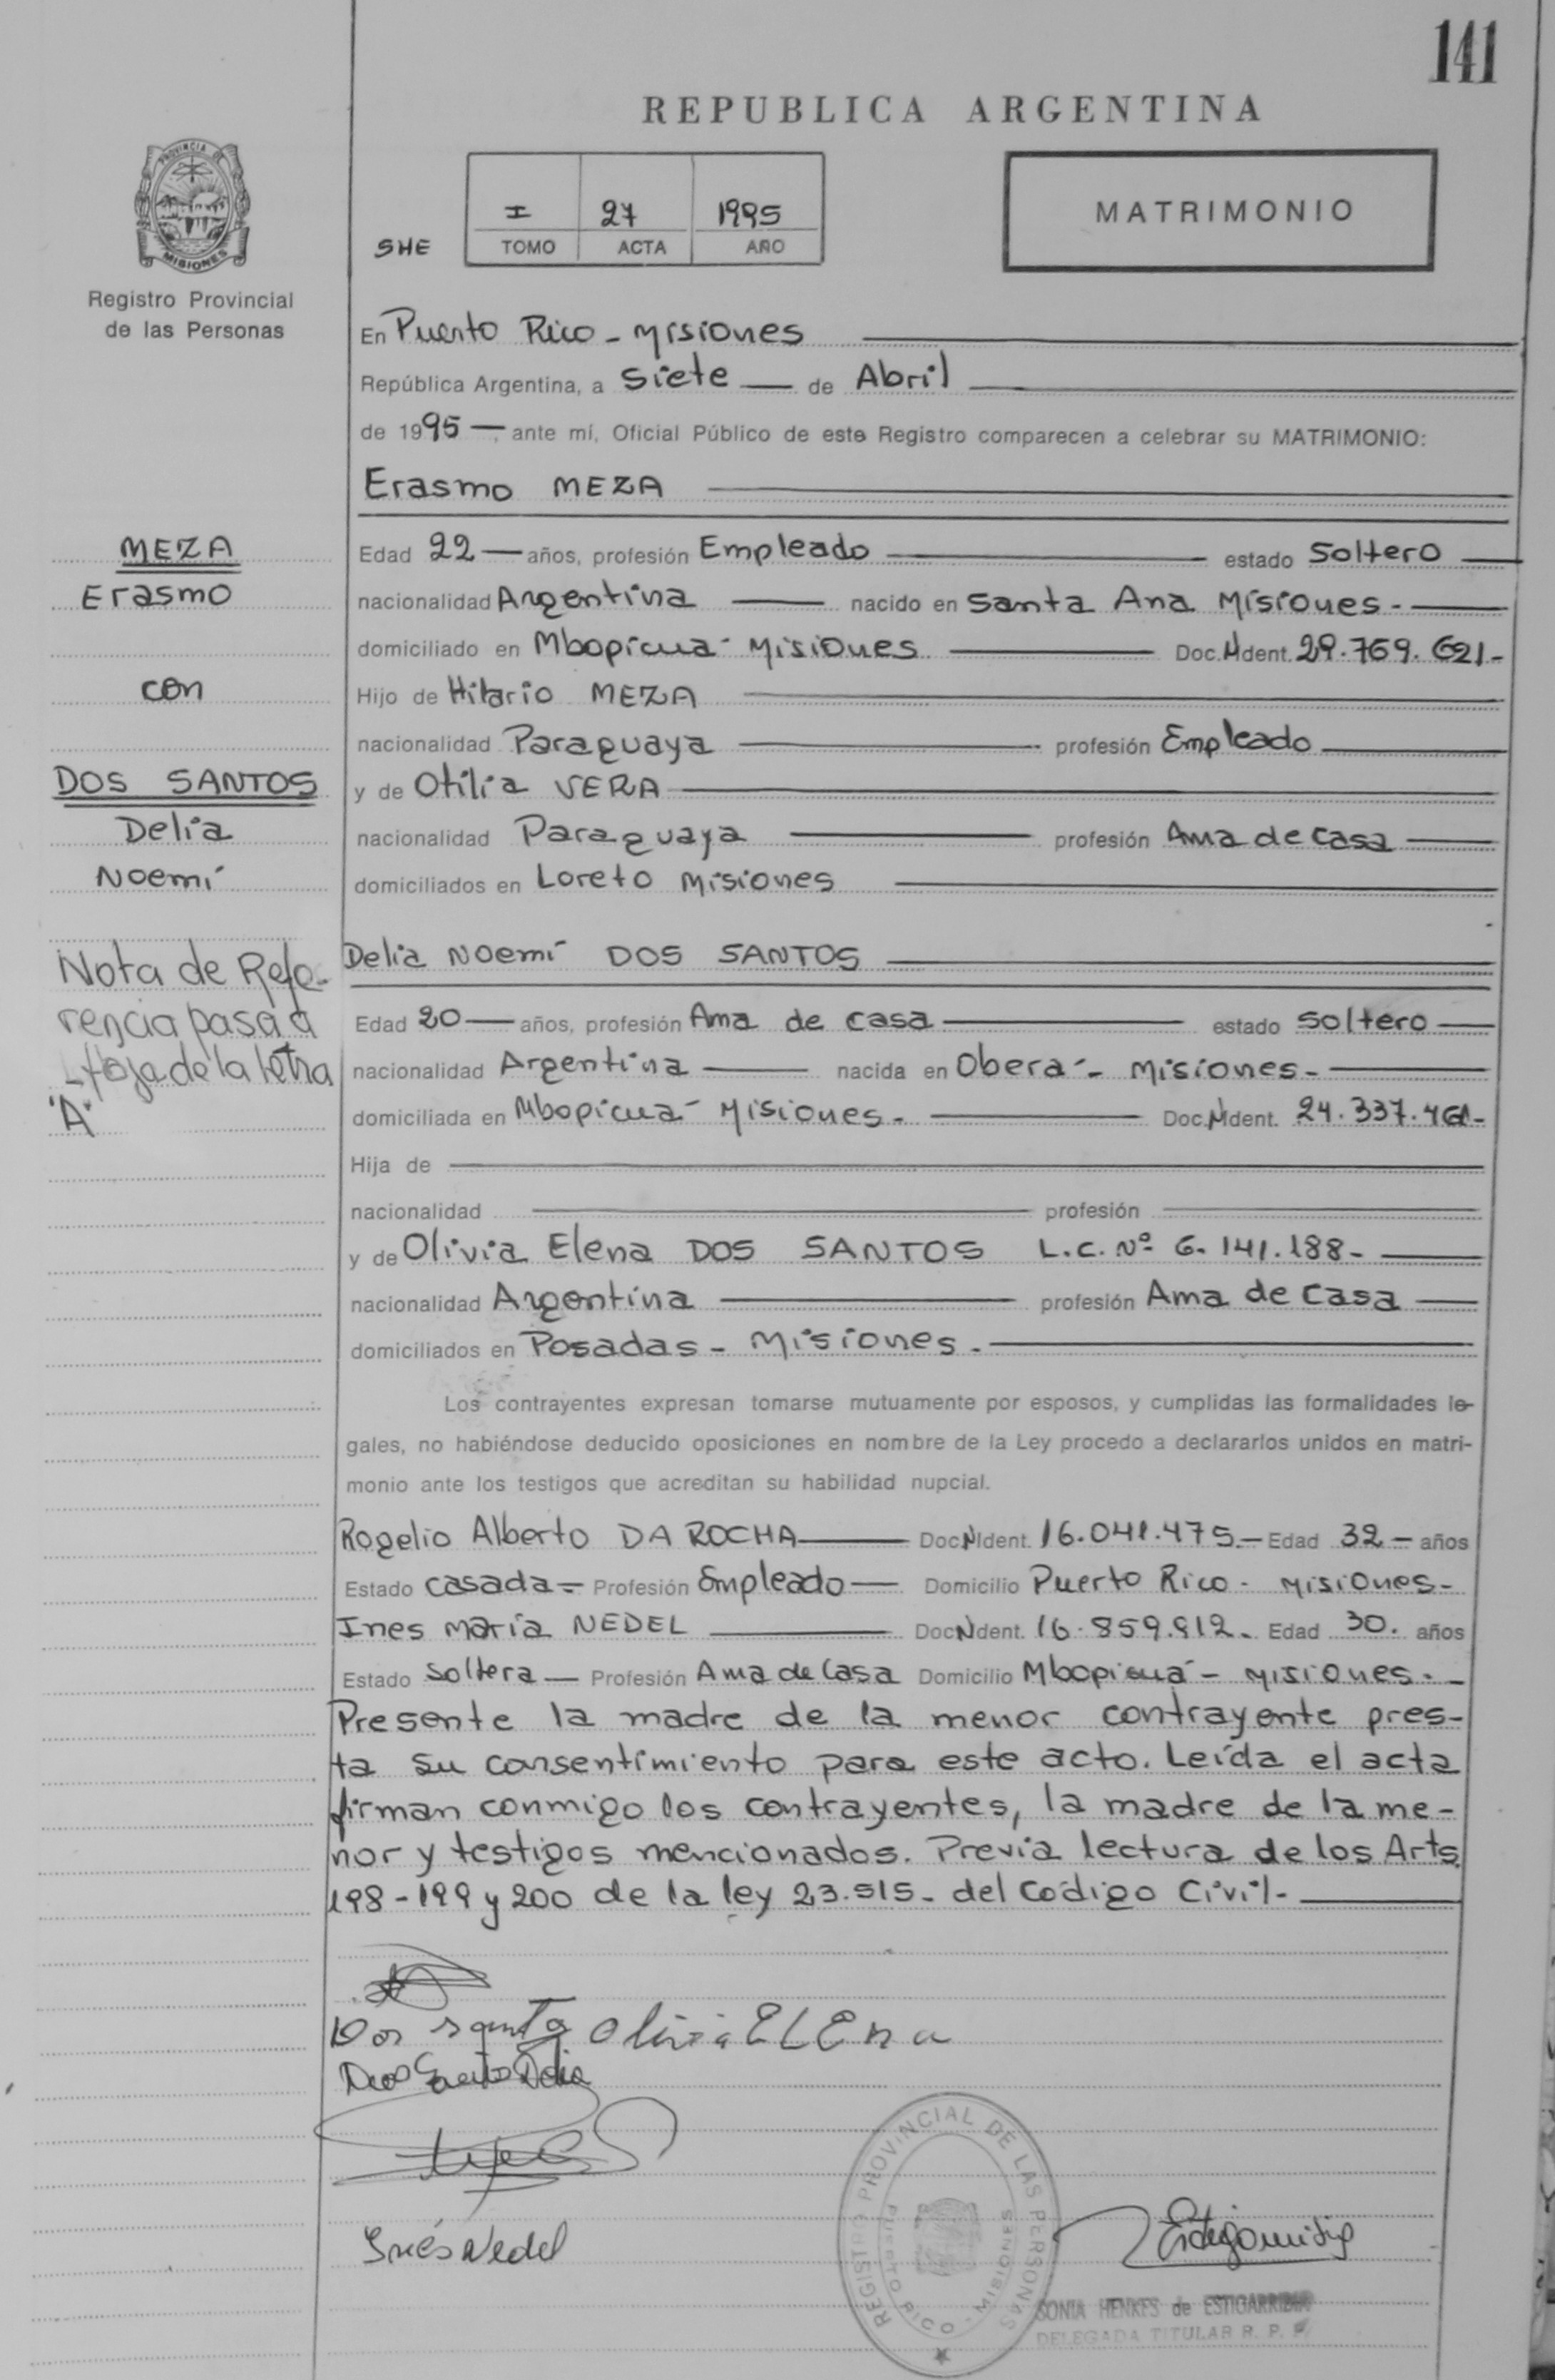 141
REPUBLICA ARGENTINA
I 27 1995
TOMO ACTA AÑO
SHE
MATRIMONIO
PROVINCIA DE MISIONES
Registro Provincial
de las Personas
En Puerto Rico - Misiones
República Argentina, a Siete de Abril
de 1995, ante mí, Oficial Público de este Registro comparecen a celebrar su MATRIMONIO:
Erasmo MEZA
MEZA
Erasmo
con
DOS SANTOS
Delia
Noemí
Nota de Refe-
rencia pasa a
Hoja de la Letra
"A"
Edad 22 años, profesión Empleado estado Soltero
nacionalidad Argentina nacido en Santa Ana Misiones.-
domiciliado en Mbopicuá - Misiones Doc. N Ident. 29.769.621-
Hijo de Hilario MEZA
nacionalidad Paraguaya profesión Empleado
y de Otilia VERA
nacionalidad Paraguaya profesión Ama de casa
domiciliados en Loreto Misiones
Delia Noemí DOS SANTOS
Edad 20 años, profesión Ama de casa estado soltero
nacionalidad Argentina nacida en Oberá - Misiones-
domiciliada en Mbopicuá - Misiones.- Doc. N Ident. 24.337.461-
Hija de
nacionalidad profesión
y de Olivia Elena DOS SANTOS L.C.Nº 6.141.188-
nacionalidad Argentina profesión Ama de Casa
domiciliados en Posadas - Misiones.-
Los contrayentes expresan tomarse mutuamente por esposos, y cumplidas las formalidades le-
gales, no habiéndose deducido oposiciones en nombre de la Ley procedo a declararlos unidos en matri-
monio ante los testigos que acreditan su habilidad nupcial.
Rogelio Alberto DA ROCHA Doc N Ident. 16.041.475.- Edad 32 - años
Estado casada = Profesión Empleado Domicilio Puerto Rico - Misiones-
Ines María NEDEL Doc N Ident. 16.859.912- Edad 30. años
Estado Soltera Profesión Ama de Casa Domicilio Mbopicuá - Misiones.-
Presente la madre de la menor contrayente pres-
ta su consentimiento para este acto. Leída el acta
firman conmigo los contrayentes, la madre de la me-
nor y testigos mencionados. Previa lectura de los Arts.
198 - 199 y 200 de la ley 23.515- del Código Civil-
Dos santo Olivia ELEna
Dos Santos Delia
Inés Nedel
REGISTRO PROVINCIAL DE LAS PERSONAS
PUERTO RICO - MISIONES
SONIA HENKES de ESTIGARRIBIA
DELEGADA TITULAR R. P. P.